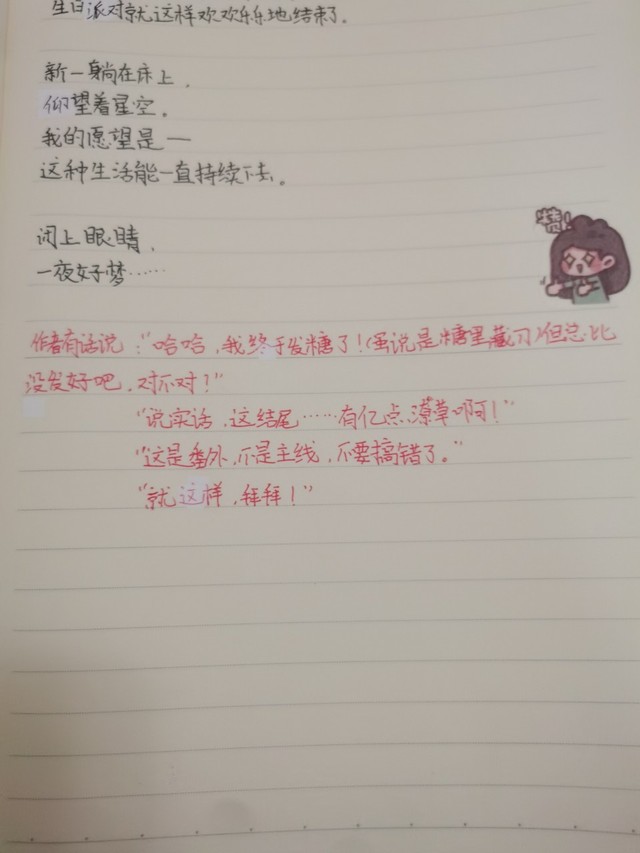 生日派对就这样欢欢乐乐地结束了.
新一躺在床上，
仰望着星空。
我的愿望是一
这种生活能一直持续下去。
闭上眼睛，
一夜好梦……
赞！
作者有话说："哈哈，我终于发糖了！(虽说是糖里藏刀)但总比
没发好吧，对不对？"
"说实话，这结尾……有亿点潦草啊！"
"这是番外，不是主线，不要搞错了。"
"就这样，拜拜！"